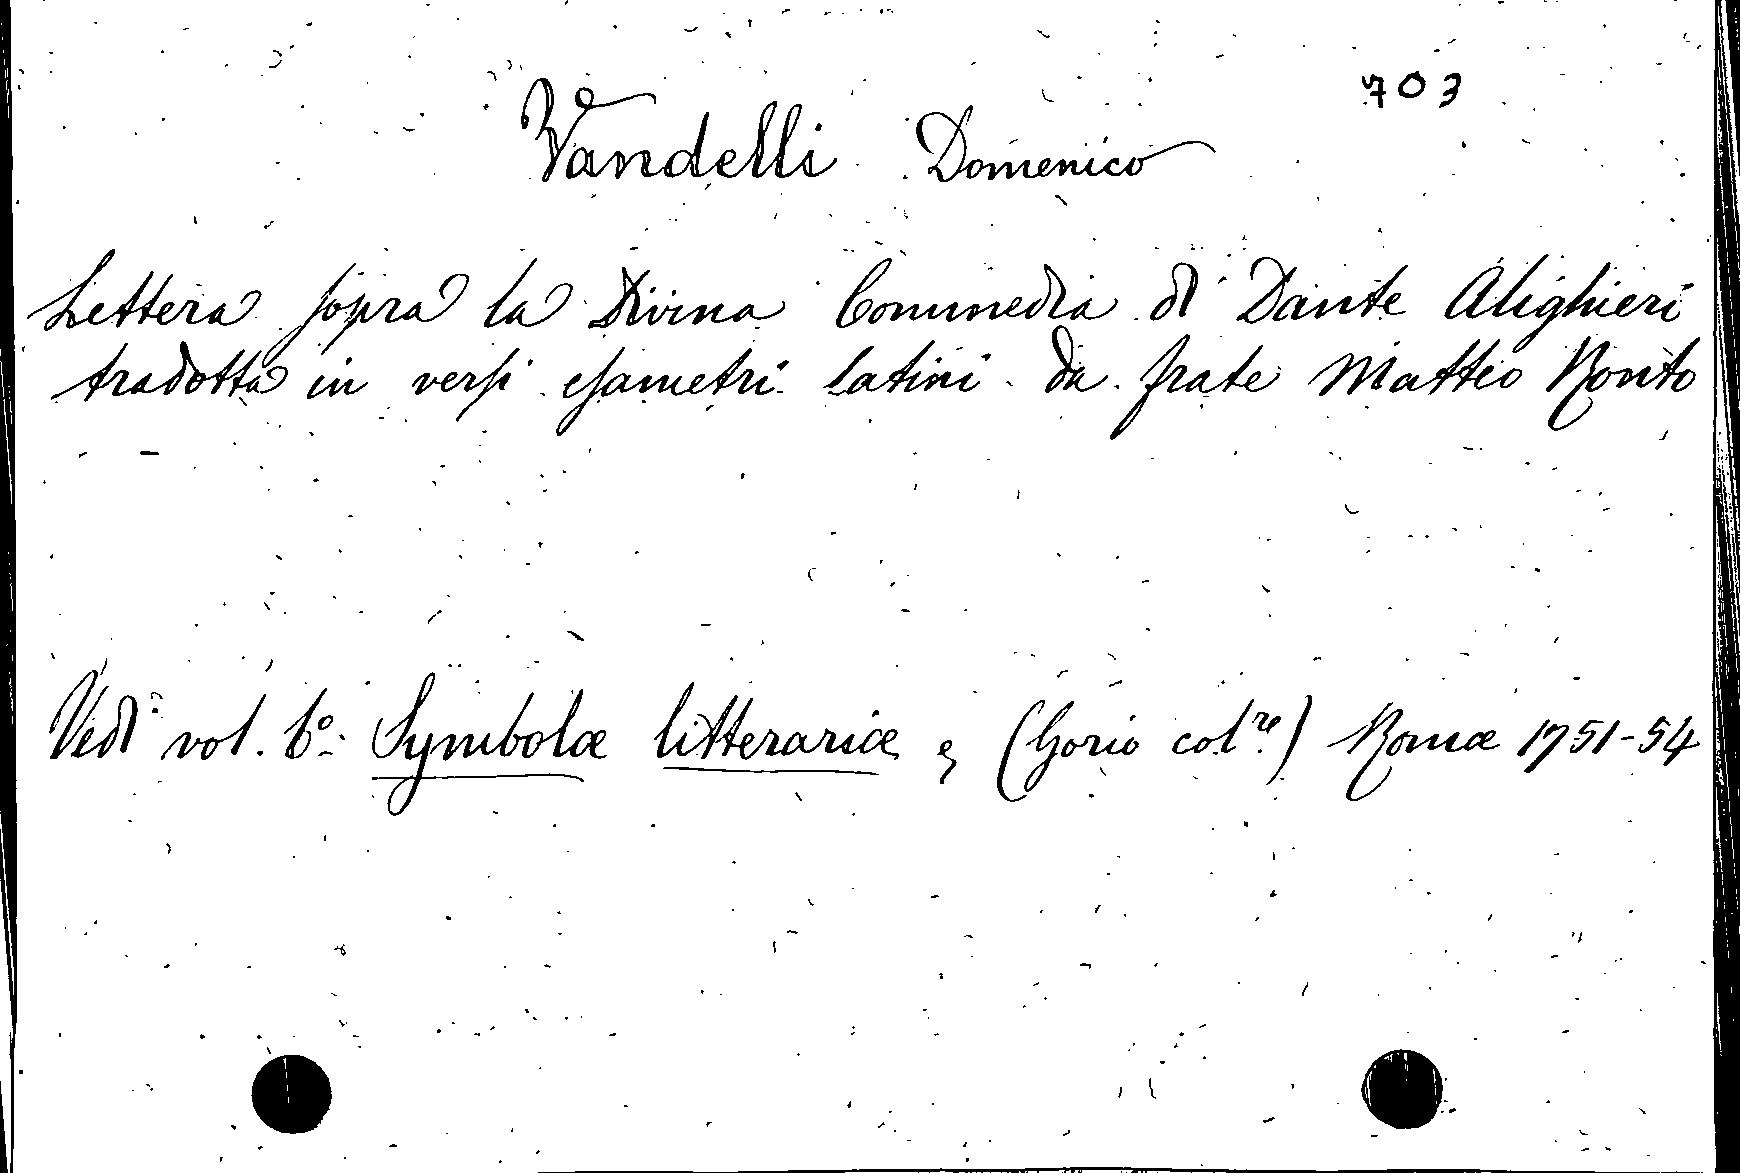 703
Vandelli Domenico
Lettera sopra la Divina Commedia di Dante Alighieri
tradotta in versi esametri latini da frate Matteo Ronto
Vedi vol. 6º: Symbolæ litterariæ (Gorio col.re) Romæ 1751-54